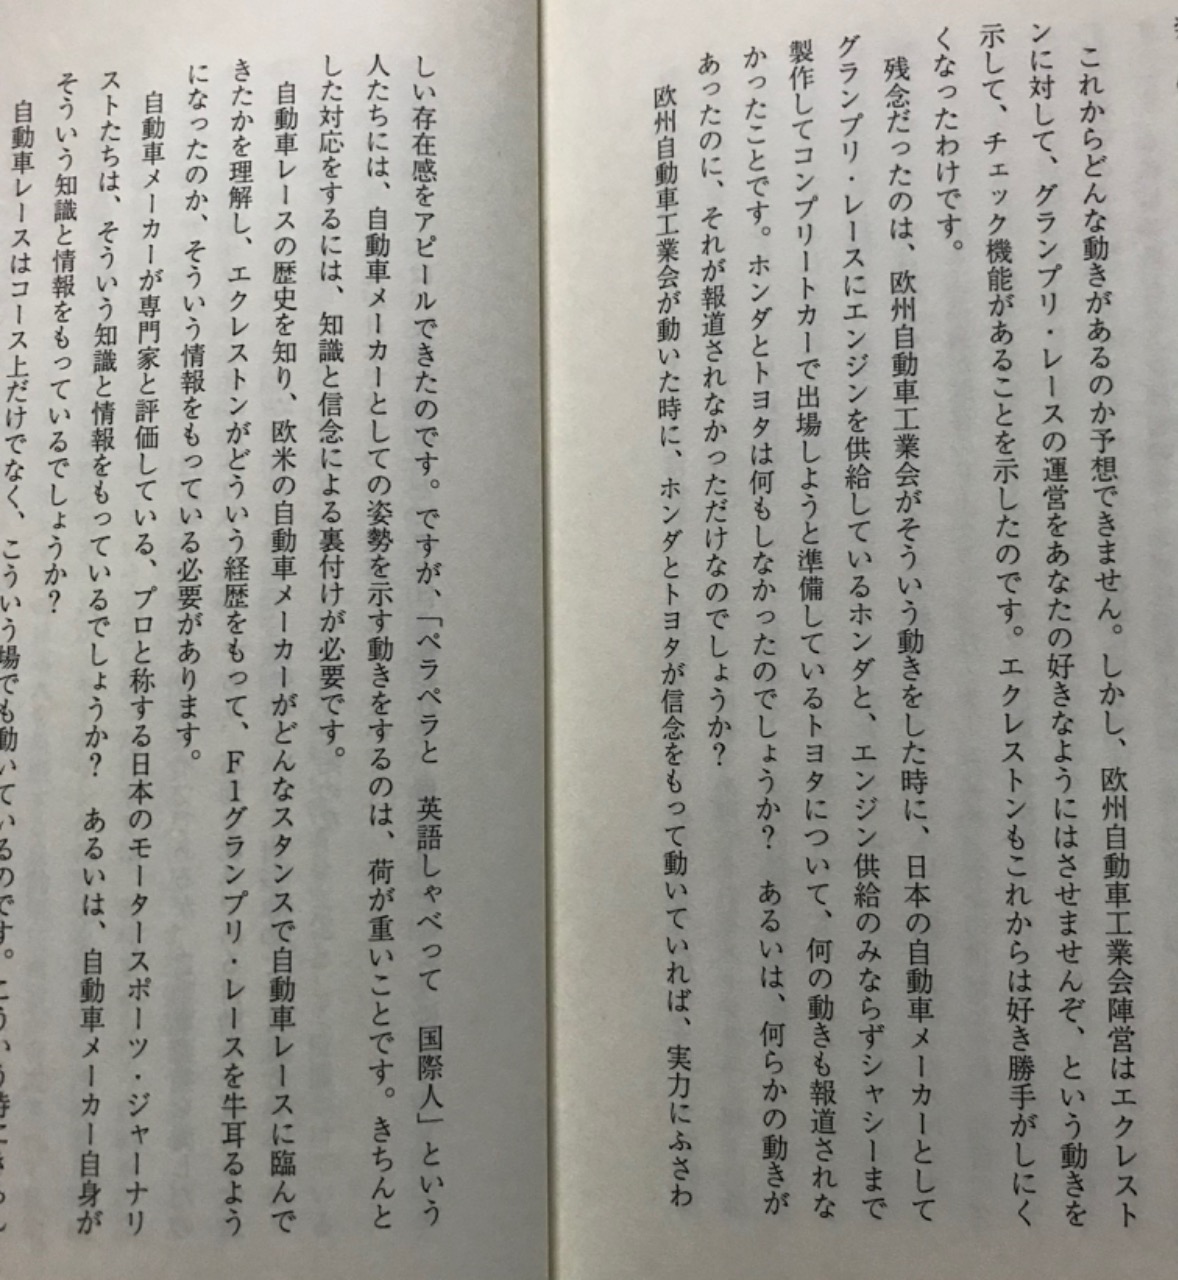 これからどんな動きがあるのか予想できません。しかし、欧州自動車工業会陣営はエクレスト
ンに対して、グランプリ・レースの運営をあなたの好きなようにはさせませんぞ、という動きを
示して、チェック機能があることを示したのです。エクレストンもこれからは好き勝手がしにく
くなったわけです。
残念だったのは、欧州自動車工業会がそういう動きをした時に、日本の自動車メーカーとして
グランプリ・レースにエンジンを供給しているホンダと、エンジン供給のみならずシャシーまで
製作してコンプリートカーで出場しようと準備しているトヨタについて、何の動きも報道されな
かったことです。ホンダとトヨタは何もしなかったのでしょうか？　あるいは、何らかの動きが
あったのに、それが報道されなかっただけなのでしょうか？
欧州自動車工業会が動いた時に、ホンダとトヨタが信念をもって動いていれば、実力にふさわ
しい存在感をアピールできたのです。ですが、「ペラペラと　英語しゃべって　国際人」という
人たちには、自動車メーカーとしての姿勢を示す動きをするのは、荷が重いことです。きちんと
した対応をするには、知識と信念による裏付けが必要です。
自動車レースの歴史を知り、欧米の自動車メーカーがどんなスタンスで自動車レースに臨んで
きたかを理解し、エクレストンがどういう経歴をもって、F1グランプリ・レースを牛耳るよう
になったのか、そういう情報をもっている必要があります。
自動車メーカーが専門家と評価している、プロと称する日本のモータースポーツ・ジャーナリ
ストたちは、そういう知識と情報をもっているでしょうか？　あるいは、自動車メーカー自身が
そういう知識と情報をもっているでしょうか？
自動車レースはコース上だけでなく、こういう場でも動いているのです。こういう時に